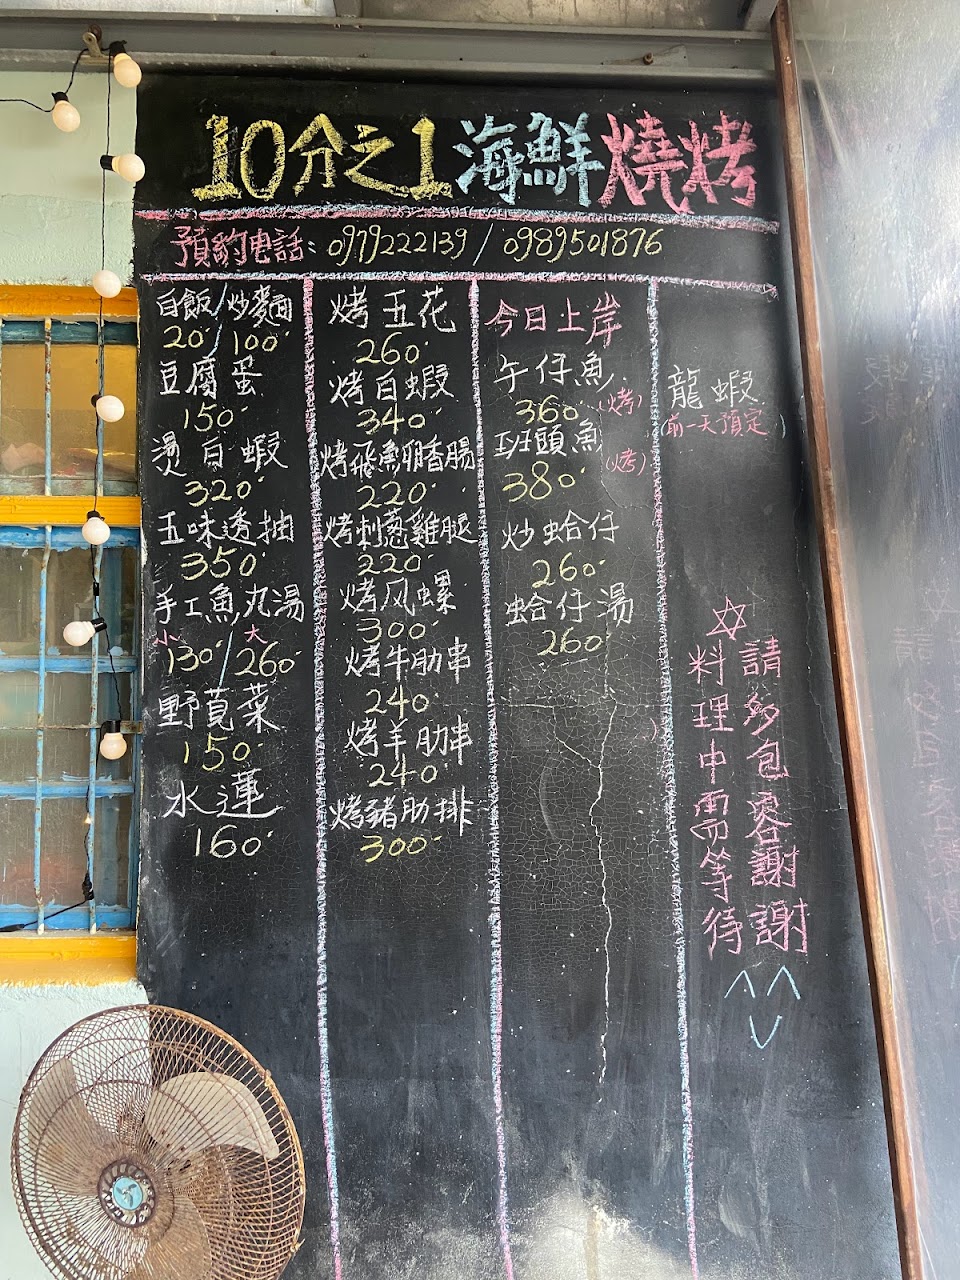 10分之1海鮮燒烤
預約电話:0979222139/0989501876
白飯/炒麵
20/100
豆腐蛋
150
燙白蝦
320
五味透抽
350
手工魚丸湯
小 大
130/260
野莧菜
150
水蓮
160
烤五花
260
烤白蝦
340
烤飛魚卵香腸
220
烤刺葱雞腿
220
烤风螺
300
烤牛肋串
240
烤羊肋串
240
烤豬肋排
300
今日上岸
午仔魚
360 (烤)
班頭魚
380 (烤)
炒蛤仔
260
蛤仔湯
260
龍蝦
(前一天預定)
請多包容謝謝
料理中需等待